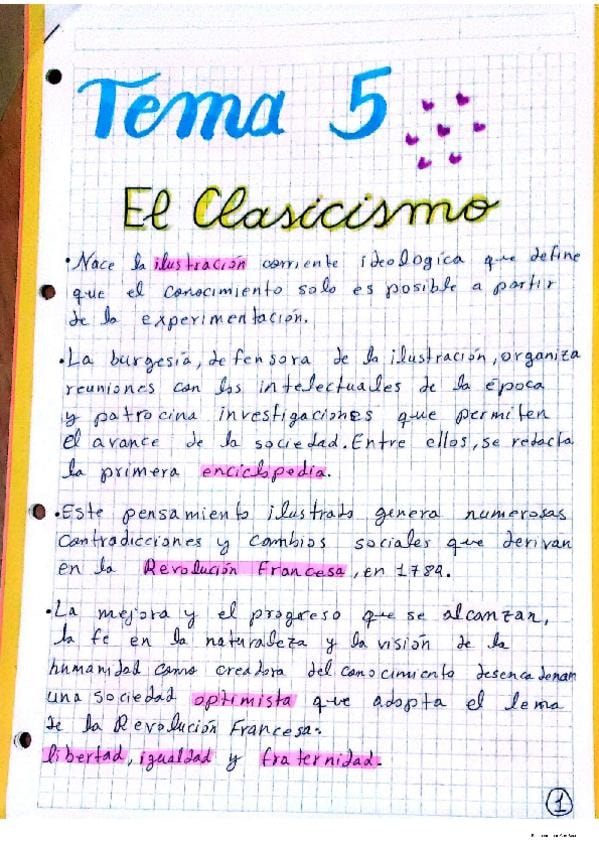 Tema 5
El Clasicismo
• Nace la ilustración corriente ideologica que define
que el conocimiento solo es posible a partir
de la experimentación.
• La burgesía, defensora de la ilustración, organiza
reuniones con los intelectuales de la época
y patrocina investigaciones que permiten
el avance de la sociedad. Entre ellos, se redacta
la primera enciclopedia.
• Este pensamiento ilustrado genera numerosas
contradicciones y cambios sociales que derivan
en la Revolución Francesa, en 1789.
• La mejora y el progreso que se alcanzan,
la fe en la naturaleza y la visión de la
humanidad como creadora del conocimiento desencadenan
una sociedad optimista que adopta el lema
de la Revolución Francesa:
libertad, igualdad y fraternidad.
1